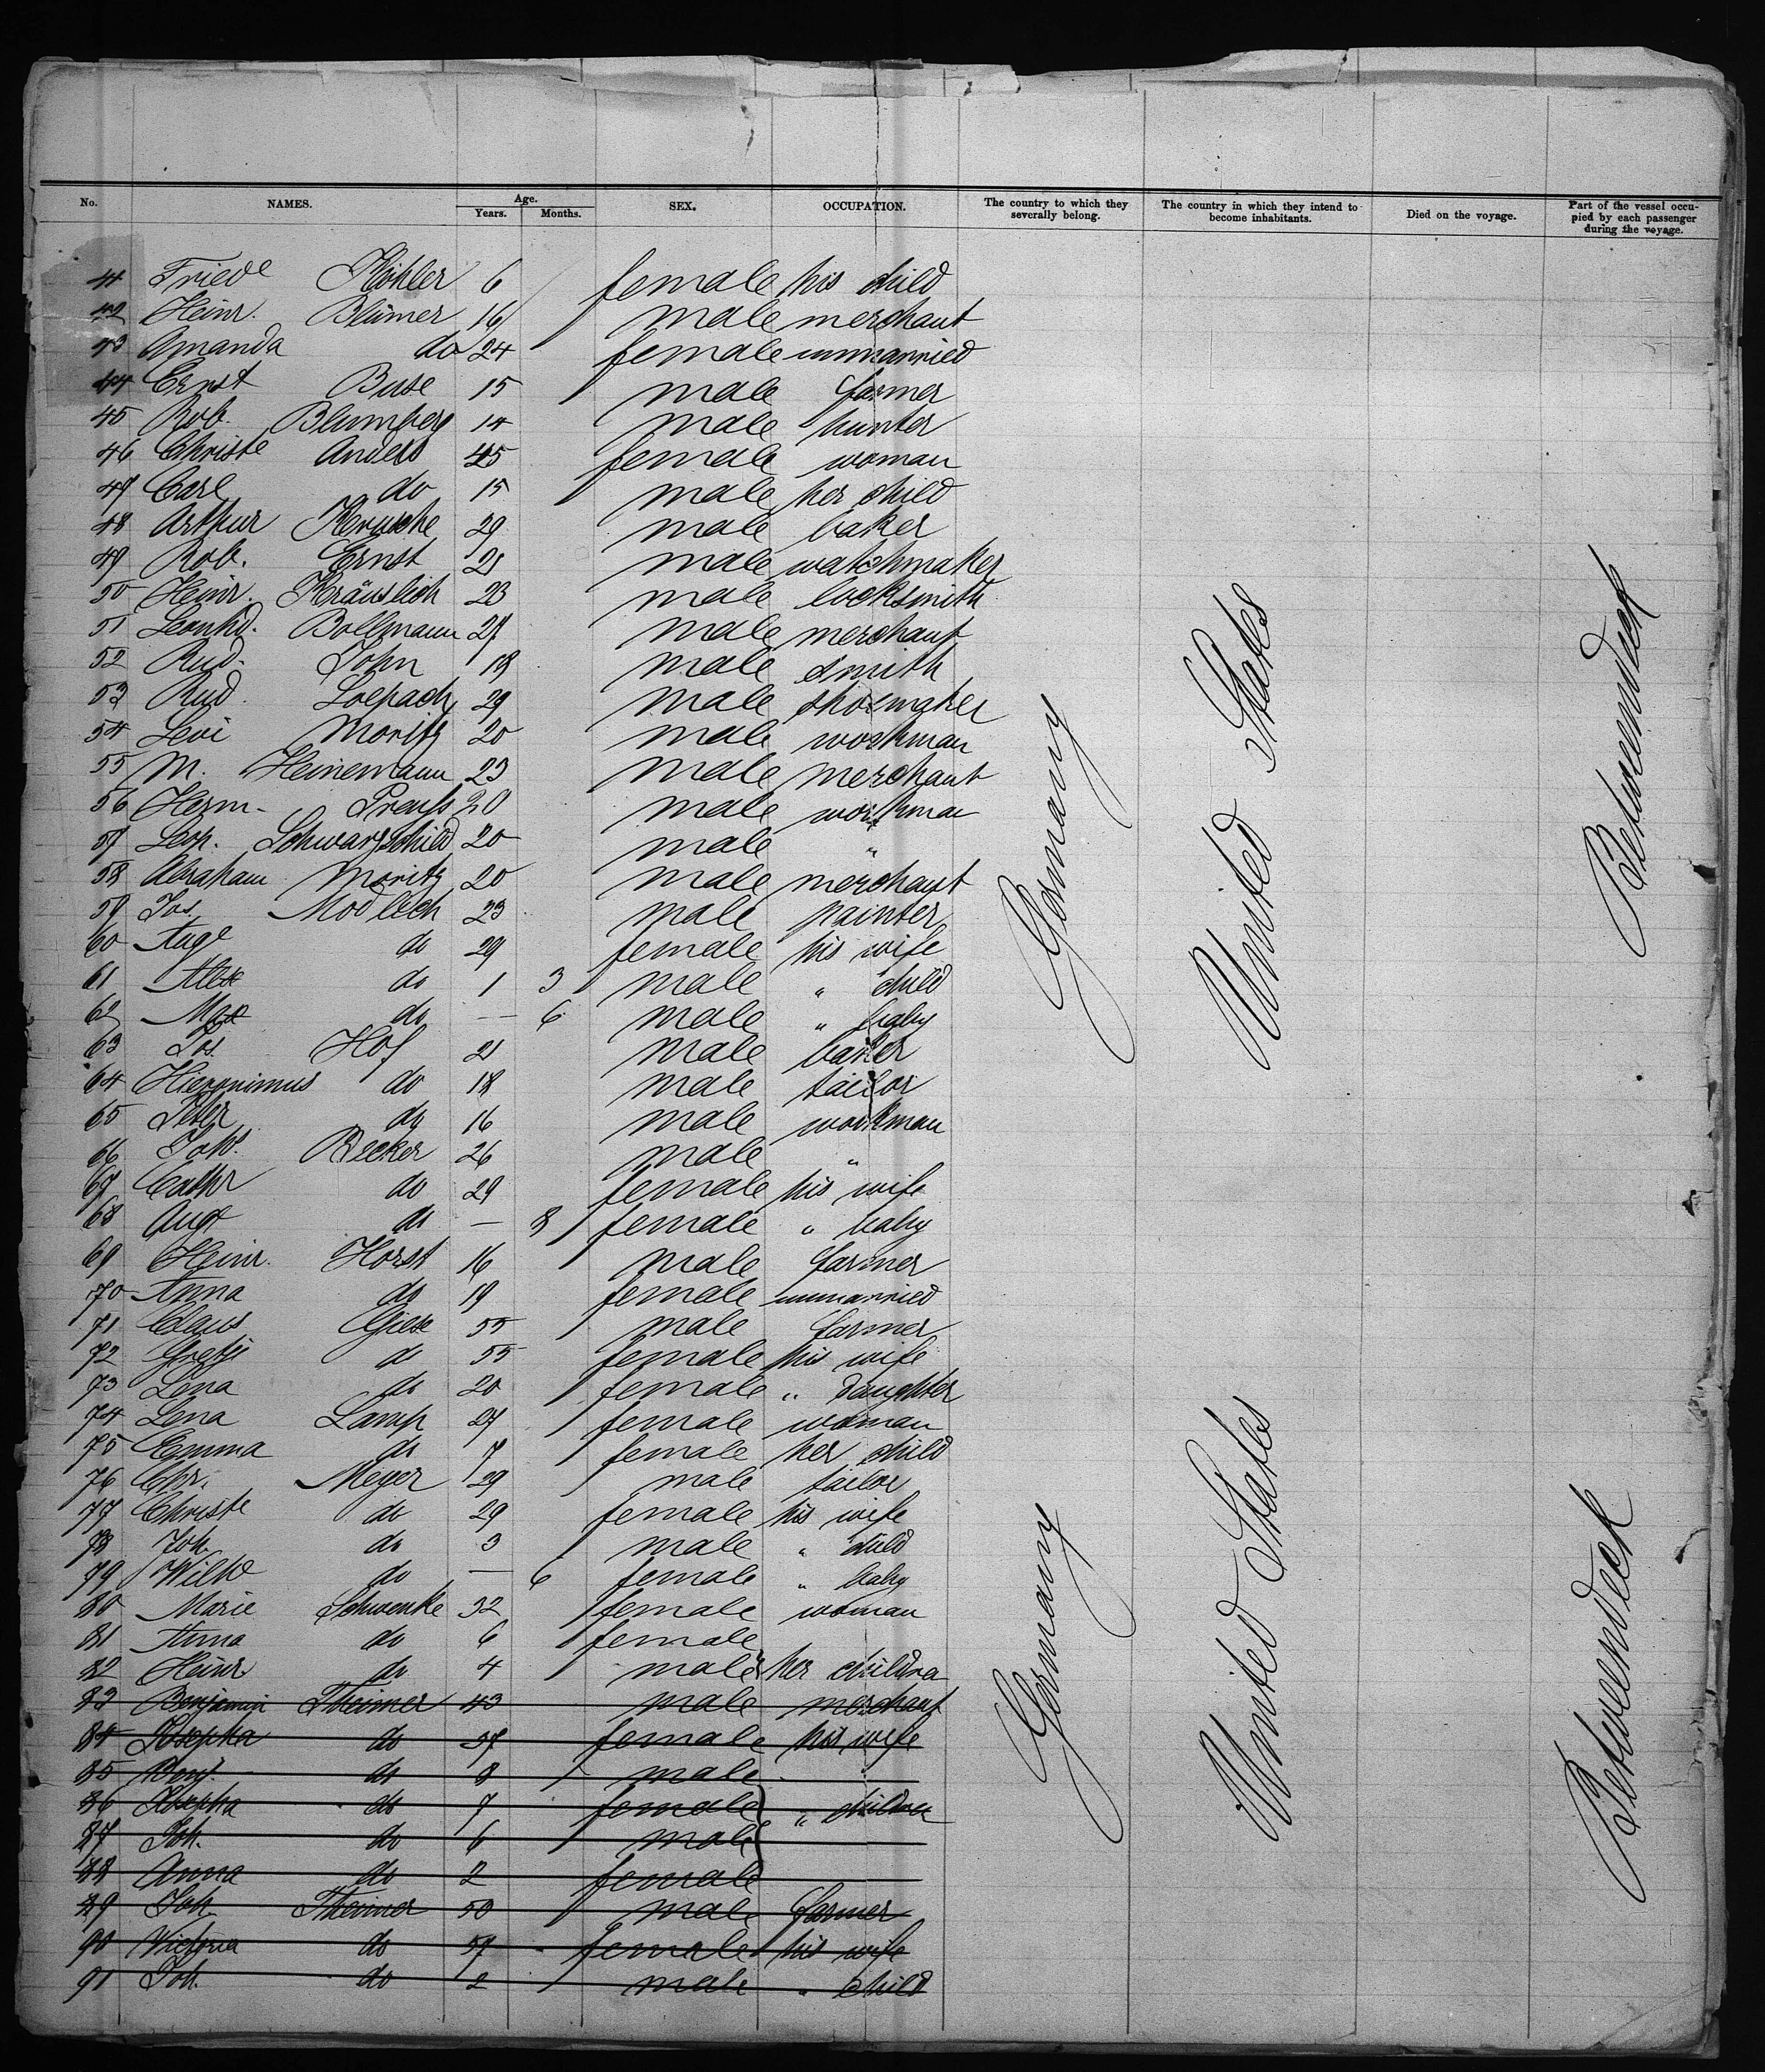 No. NAMES. Age. Years. Months. SEX. OCCUPATION. The country to which they severally belong. The country in which they intend to become inhabitants. Died on the voyage. Part of the vessel occupied by each passenger during the voyage.
41 Friede Köhler 6 female his child
42 Heinr. Blümer 16 male merchant
43 Amanda do 24 female unmarried
44 Ernst Buse 15 male farmer
45 Rob. Blumberg 14 male hunter
46 Christe Anders 45 female woman
47 Carl do 15 male her child
48 Arthur 29 male baker
49 Rob. Ernst 21 male watchmaker
50 Heinr. Kräuslich 23 male locksmith
51 Bollmann 27 male merchant
52 Rud. John 18 male smith
53 Rud. 29 male shoemaker
54 Levi Moritz 20 male workman
55 M. Heinemann 23 male merchant
56 Herm. Preuss 20 male workman
57 Leop. Schwarzschild 20 male "
58 Abraham Moritz 20 male merchant
59 Jos. Modlech 23 male painter
60 Auge do 29 female his wife
61 Alex do 1 3 male " child
62 Max do — 6 male " baby
63 Jos. Hof 21 male baker
64 Hieronimus do 18 male tailor
65 Peter do 16 male workman
66 Johs. Becker 26 male "
67 Cathr do 29 female his wife
68 Aug do — 8 female " baby
69 Heinr. Horst 16 male farmer
70 Anna do 19 female unmarried
71 Claus Giese 55 male farmer
72 Gretj do 55 female his wife
73 Lena do 20 female " daughter
74 Lena Lamp 27 female woman
75 Emma do 7 female her child
76 Chr. Meyer 29 male tailor
77 Christe do 29 female his wife
78 Joh. do 3 male " child
79 Wilhe do — 6 female " baby
80 Marie Schwenke 32 female woman
81 Anna do 6 female
82 Heinr. do 4 male her children
83 Benjamin Theimer 43 male merchant
84 Josepha do 37 female his wife
85 Benj. do 8 male
86 Josepha do 7 female " children
87 Joh. do 6 male
88 Anna do 2 female
89 Joh. Theimer 50 male farmer
90 Victoria do 57 female his wife
91 Joh. do 2 male " child
Germany
United States
Betweendeck
Germany
United States
Betweendeck